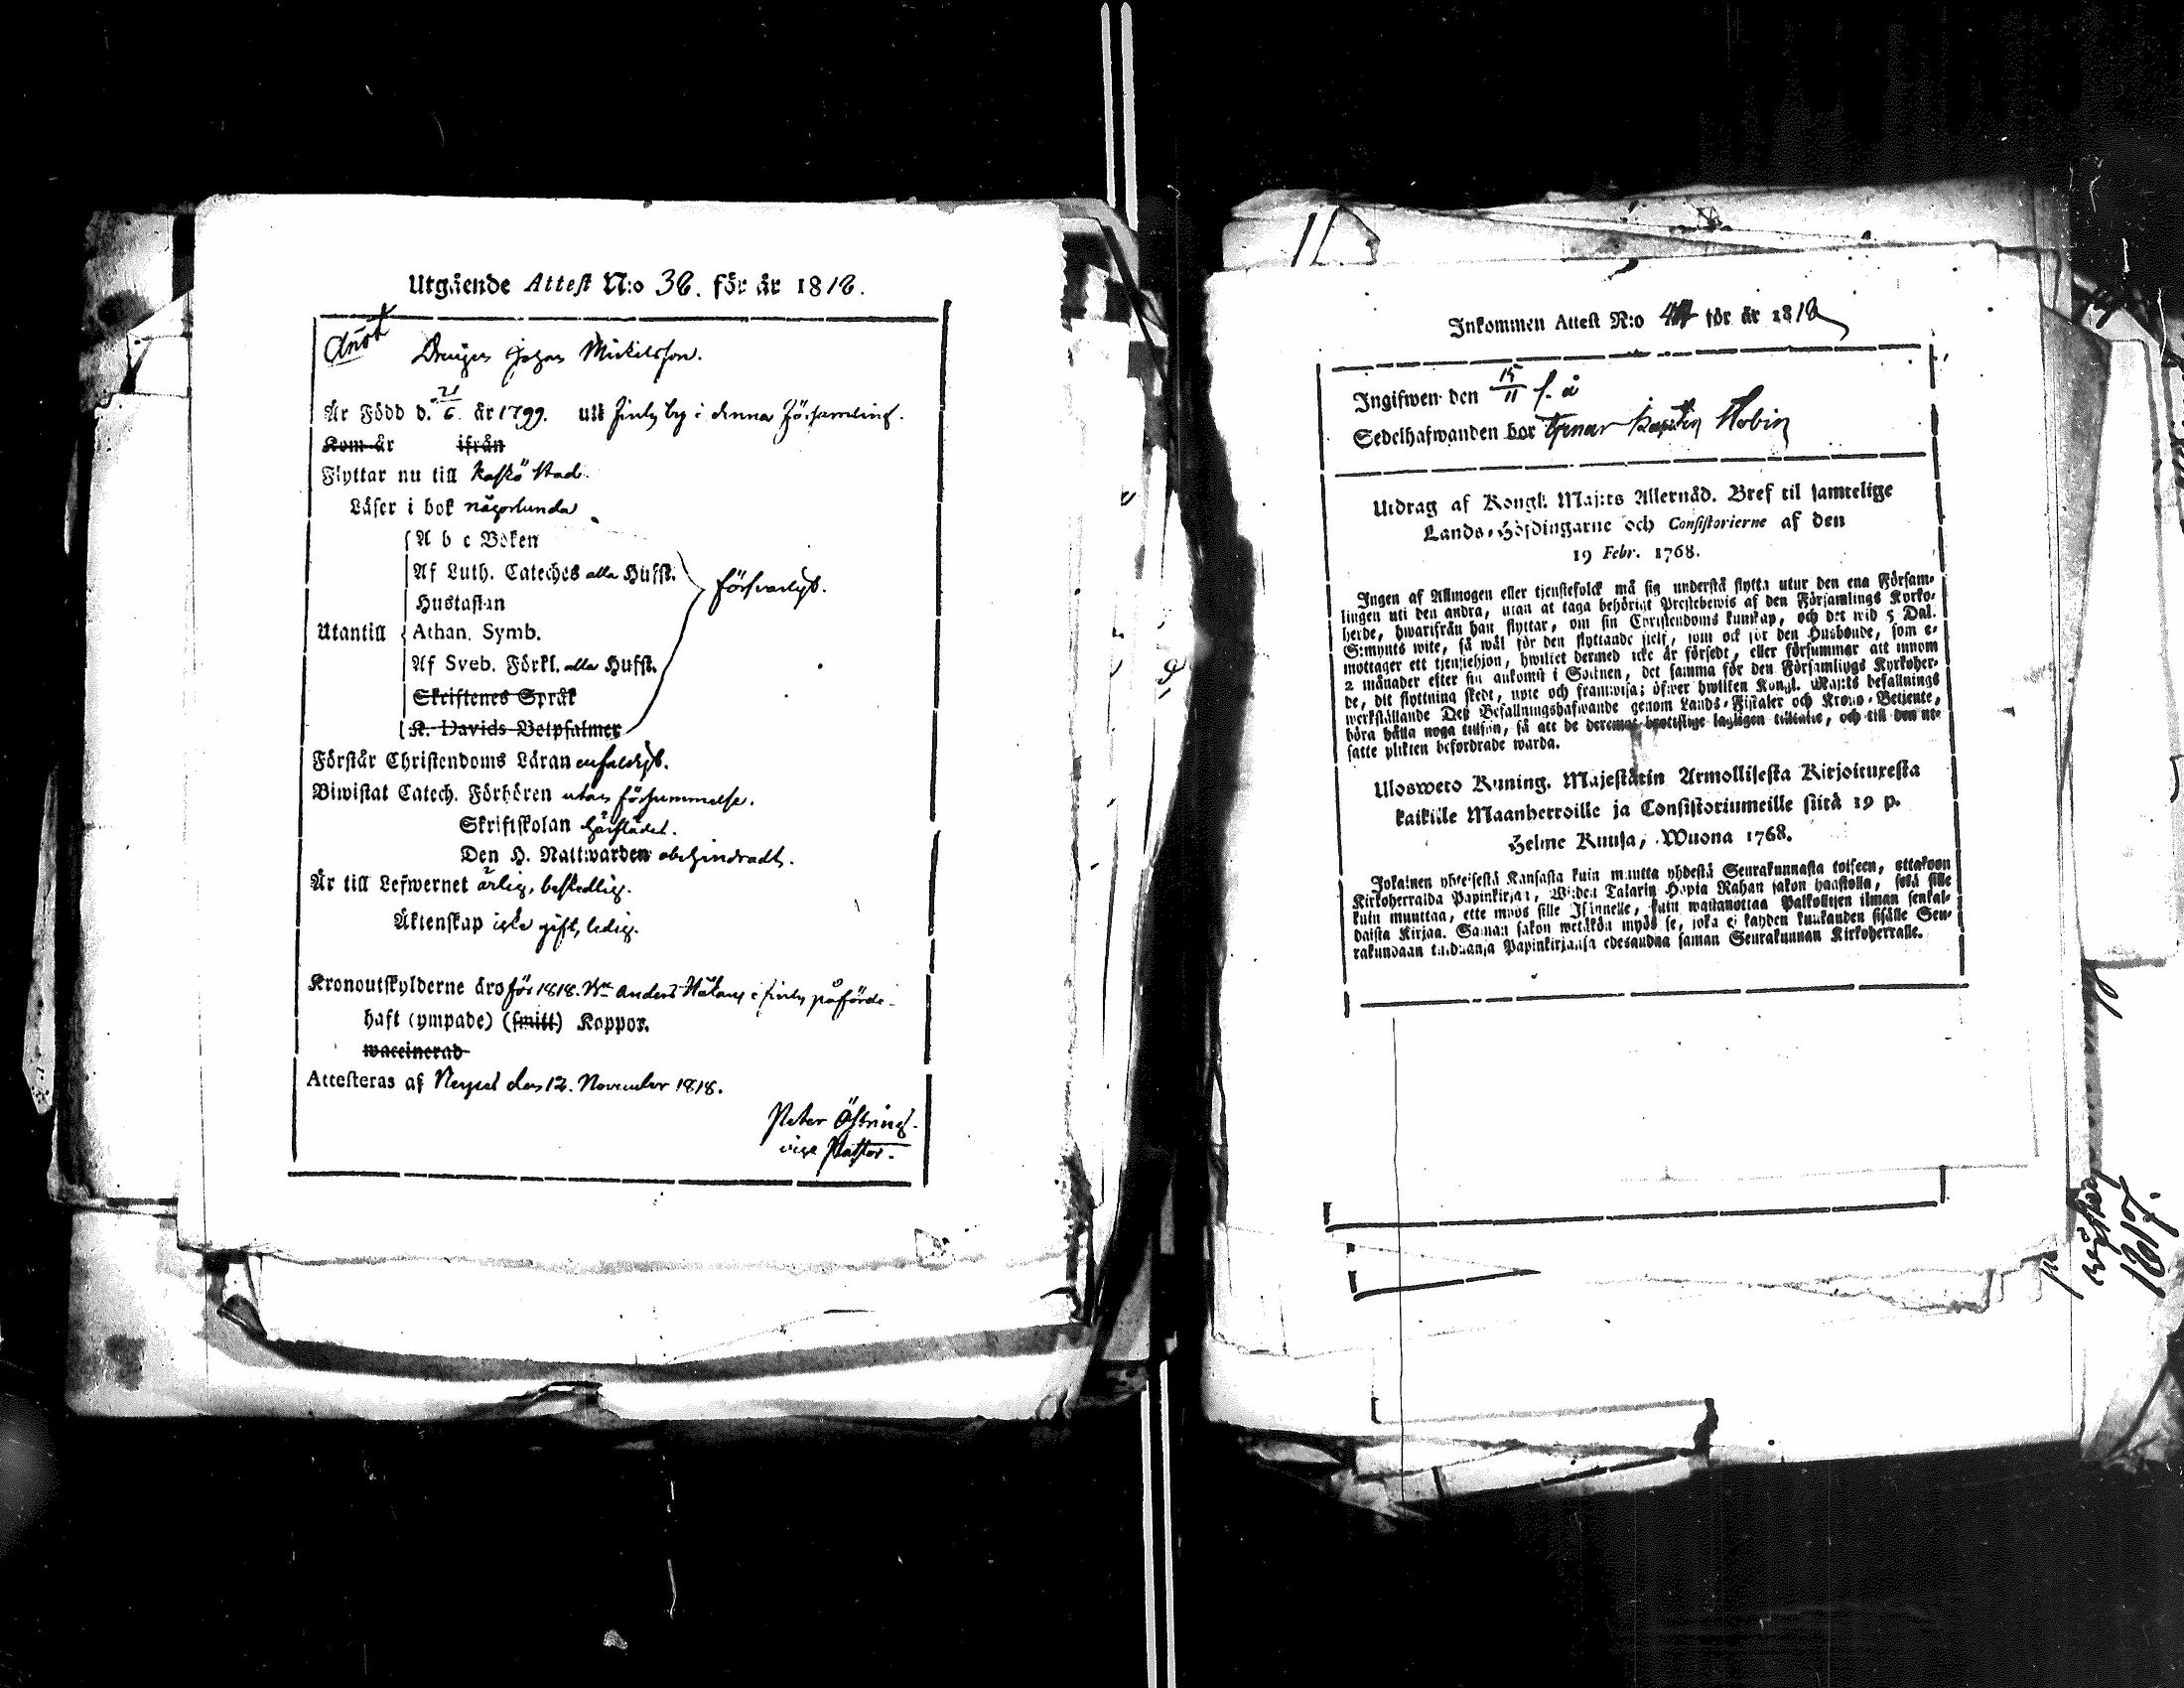 Utgående Attest N:o 38. för år 1818.
Drängen Johan Mickelsson.
Är Född d. 21/6 år 1799. uti Finby by i denna Församling.
Kom år ifrån
Flyttar nu till Kaskö Stad.
Läser i bok någorlunda
A b c Boken
Af Luth. Cateches alla Hufst.
Hustaflan
försvarligt.
Utantill
Athan. Symb.
Af Sveb. Förkl. alla Hufst.
Skriftenes Språk
K. Davids Botpsalmer
Förstår Christendoms Läran enfaldigt.
Biwistat Catech. Förhören utan försummelse.
Skriftskolan härstädes.
Den H. Nattwarden obehindradt.
Är till Lefwernet ärlig, beskedlig.
Äktenskap icke gift, ledig.
Kronoutskylderne äro för 1818. Anders i Finby påförde.
haft (ympade) (smitt) Koppor.
waccinerad
Attesteras af Nerpes den 12. November 1818.
Peter Östring.
vice Pastor.
Inkommen Attest N:o för år 1818
Ingifwen den 15/11 s. å
Sedelhafwanden bor tjenar Hobin
Utdrag af Kongl. Maj:ts Allernåd. Bref til samtelige
Lands-Höfdingarne och Consistorierne af den
19 Febr. 1768.
Ingen af Allmogen eller tjenstefolck må sig understå flytta utur den ena Försam-
lingen uti den andra, utan at taga behörigt Prestebewis af den Församlings Kyrko-
herde, hwarifrån han flyttar, om sin Christendoms kunskap, och det wid 5 Dal.
S:mynts wite, så wäl för den flyttande sielf, som ock för den Husbonde, som e-
mottager ett tjenstehjon, hwilket dermed icke är försedt, eller försummar att innom
2 månader efter sin ankomst i Socknen, det samma för den Församlings Kyrkoher-
de, dit flyttning skedt, upte och framwisa; öfwer hwilken Kongl. Maj:ts befallnings
werkställande Deß Befallningshafwande genom Lands-Fiskaler och Krono-Betjente,
böra hålla noga tillsyn, så att de deremot brottslige lagligen tilltalte, och till den ut-
satte plikten befordrade warda.
Ulosweto Kuning. Majestätin Armollisesta Kirjoituxesta
kaikille Maanherroille ja Consistoriumeille siitä 19 p.
Helme Kuusa, Wuona 1768.
Jokainen yhteisestä Kansasta kuin muutta yhdestä Seurakunnasta toiseen, ottakoon
Kirkoherralda Papinkirjan, Wiiden Talarin Hopia Rahan sakon haastolla, sekä sille
kuin muuttaa, ette myös sille Isännelle, kuin wastanottaa Palkollisen ilman senkal-
daista Kirjaa. Saman sakon wetäkön myös se, joka ei kahden kuukauden sisälle Seu-
rakundaan tulduansa Papinkirjaansa edesanna saman Seurakunnan Kirkoherralle.
1817.